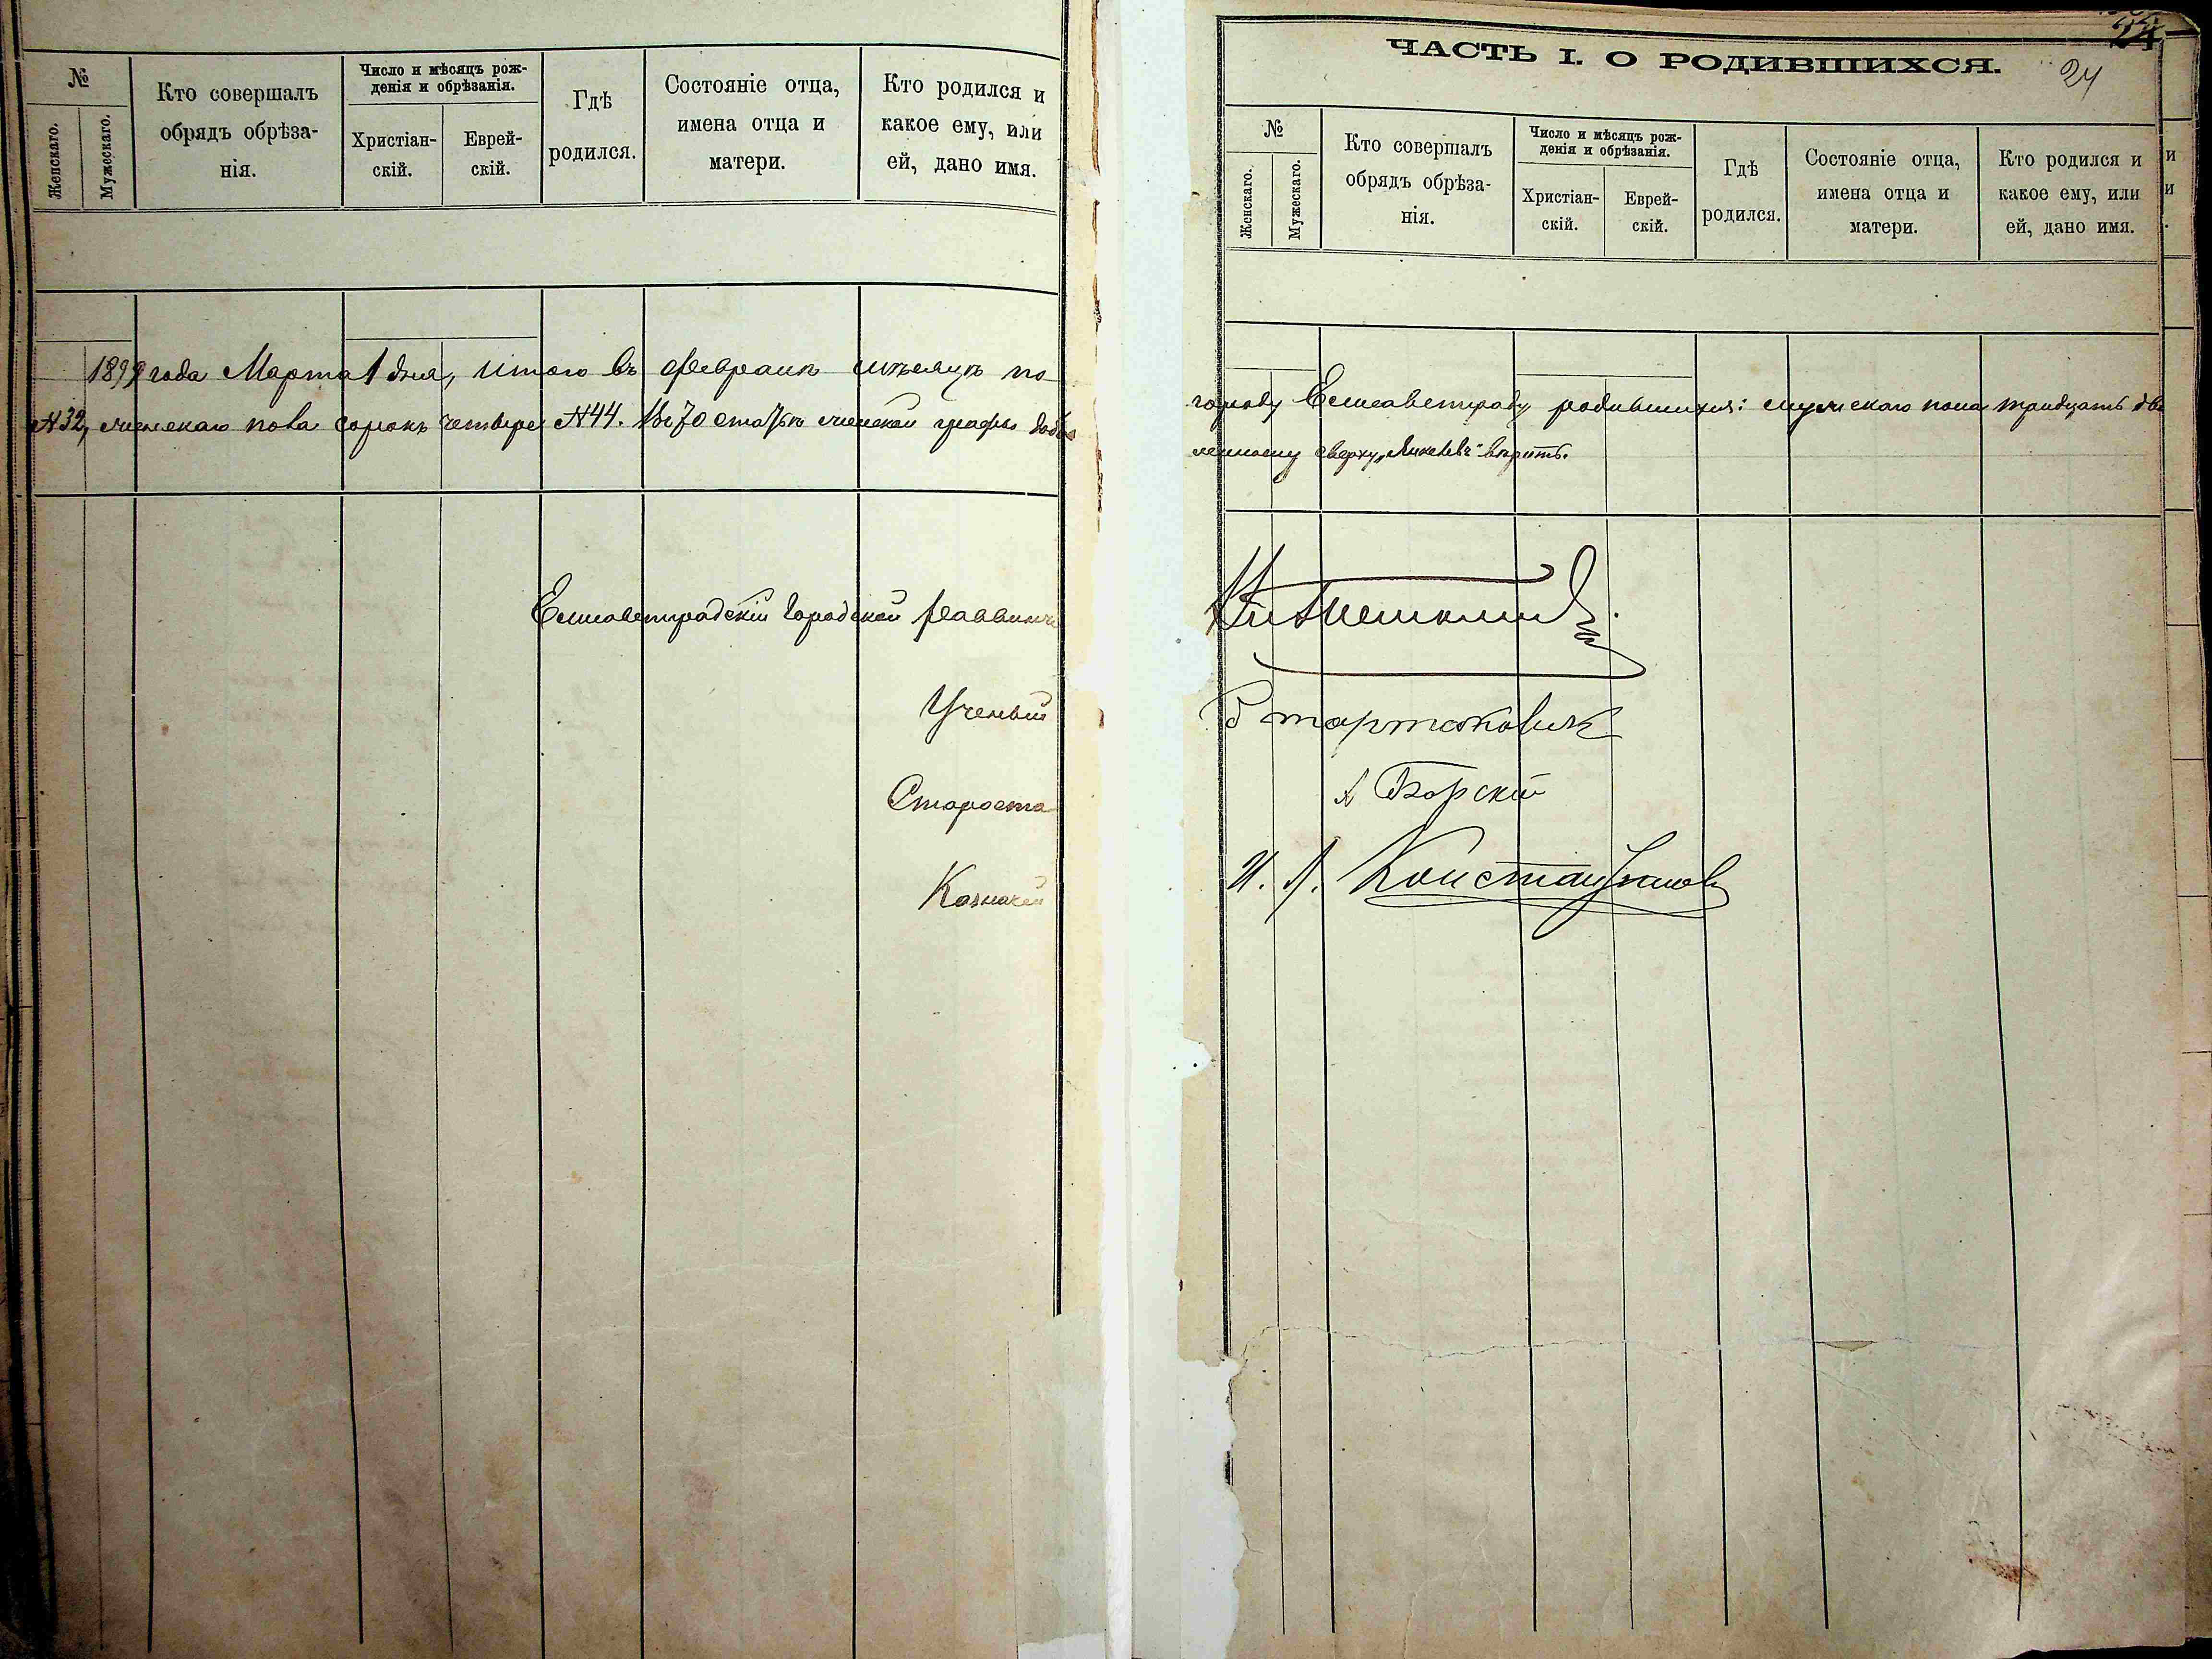 №
Женскаго.
Мужескаго.
Кто совершалъ
обрядъ обрѣза-
нія.
Число и мѣсяцъ рож-
денія и обрѣзанія.
Христіан-
скій.
Еврей-
скій.
Гдѣ
родился.
Состояніе отца,
имена отца и
матери.
Кто родился и
какое ему, или
ей, дано имя.
1899 года Марта 1 дня, итого въ февралѣ мѣсяцѣ по
№ 32, женскаго пола сорокъ четыре № 44. Въ 70 статьѣ женской графы добав
Елисаветградскій Городской Раввинъ
Ученый
Староста
Казначей
24
ЧАСТЬ I. О РОДИВШИХСЯ.
24
№
Женскаго.
Мужескаго.
Кто совершалъ
обрядъ обрѣза-
нія.
Число и мѣсяцъ рож-
денія и обрѣзанія.
Христіан-
скій.
Еврей-
скій.
Гдѣ
родился.
Состояніе отца,
имена отца и
матери.
Кто родился и
какое ему, или
ей, дано имя.
городу Елисаветграду родившихся: мужскаго пола тридцать два
ленному сверху вѣрить.
Тартаковскій
А Борскій
И. Л. Константиновъ